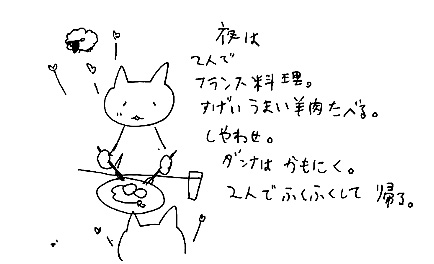 夜は
2人で
フランス料理。
すげいうまい羊肉たべる。
しやわせ。
ダンナはかもにく。
2人でふくふくして帰る。